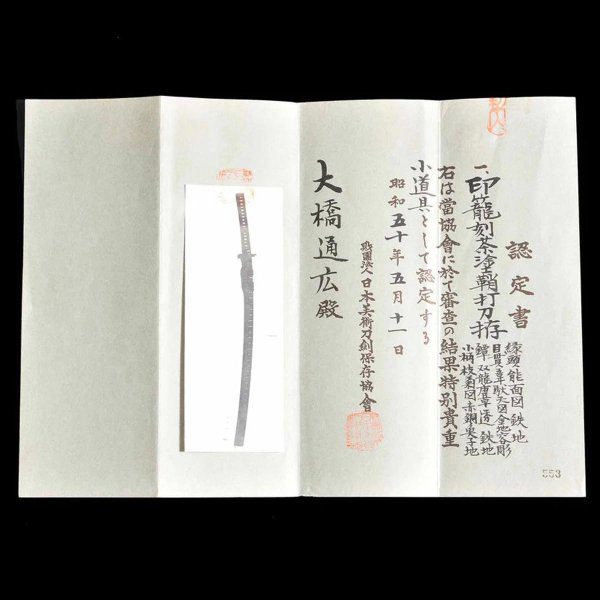 認定書
一、印籠刻茶塗鞘打刀拵
縁頭 能面図 鉄地
目貫 章駄天図 金地容彫
鐔 双龍唐草透 鉄地
小柄 枝菊図 赤銅魚子地
右は當協會に於て審査の結果特別貴重
小道具として認定する
昭和五十年五月十一日
財團法人日本美術刀剣保存協會
大橋通広殿
553